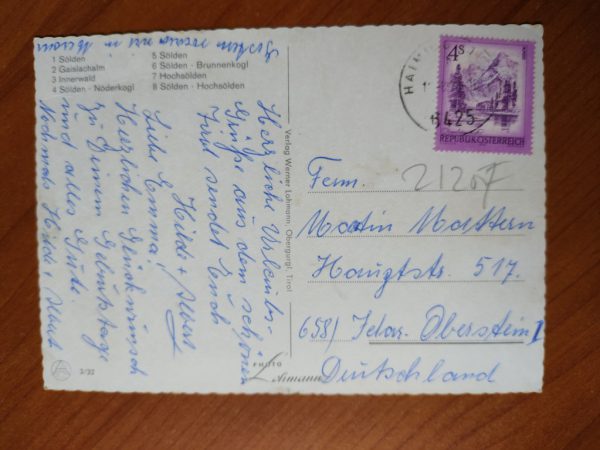 1 Sölden
2 Gaislachalm
3 Innerwald
4 Sölden - Nöderkogl
5 Sölden
6 Sölden - Brunnenkogl
7 Hochsölden
8 Sölden - Hochsölden
Herzliche Urlaubs-
Grüße aus dem schönen
Tirol sendet Euch
Hilde + Albert
Liebe Emma!
Herzlichen Glückwunsch
zu Deinem Geburtstage
und alles Gute
Nochmals Hilde + Albert
Verlag Werner Lohmann, Obergurgl, Tirol
PHOTO
Lohmann
3/32
6425
4S
REPUBLIK ÖSTERREICH
2120F
Fam.
Martin Mattern
Hauptstr. 517.
6581 Idar-Oberstein
Deutschland